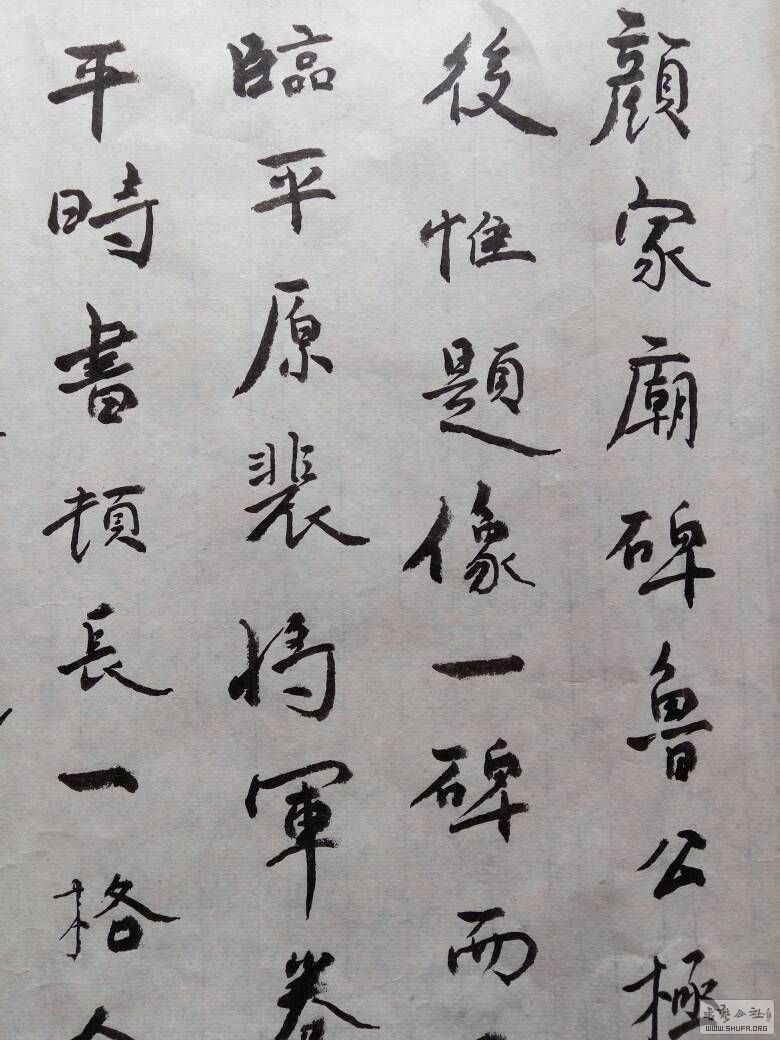 顏家廟碑魯公極
後惟題像一碑而
臨平原裴將軍
平時書頓長一格
书艺公社
WWW.SHUFA.ORG